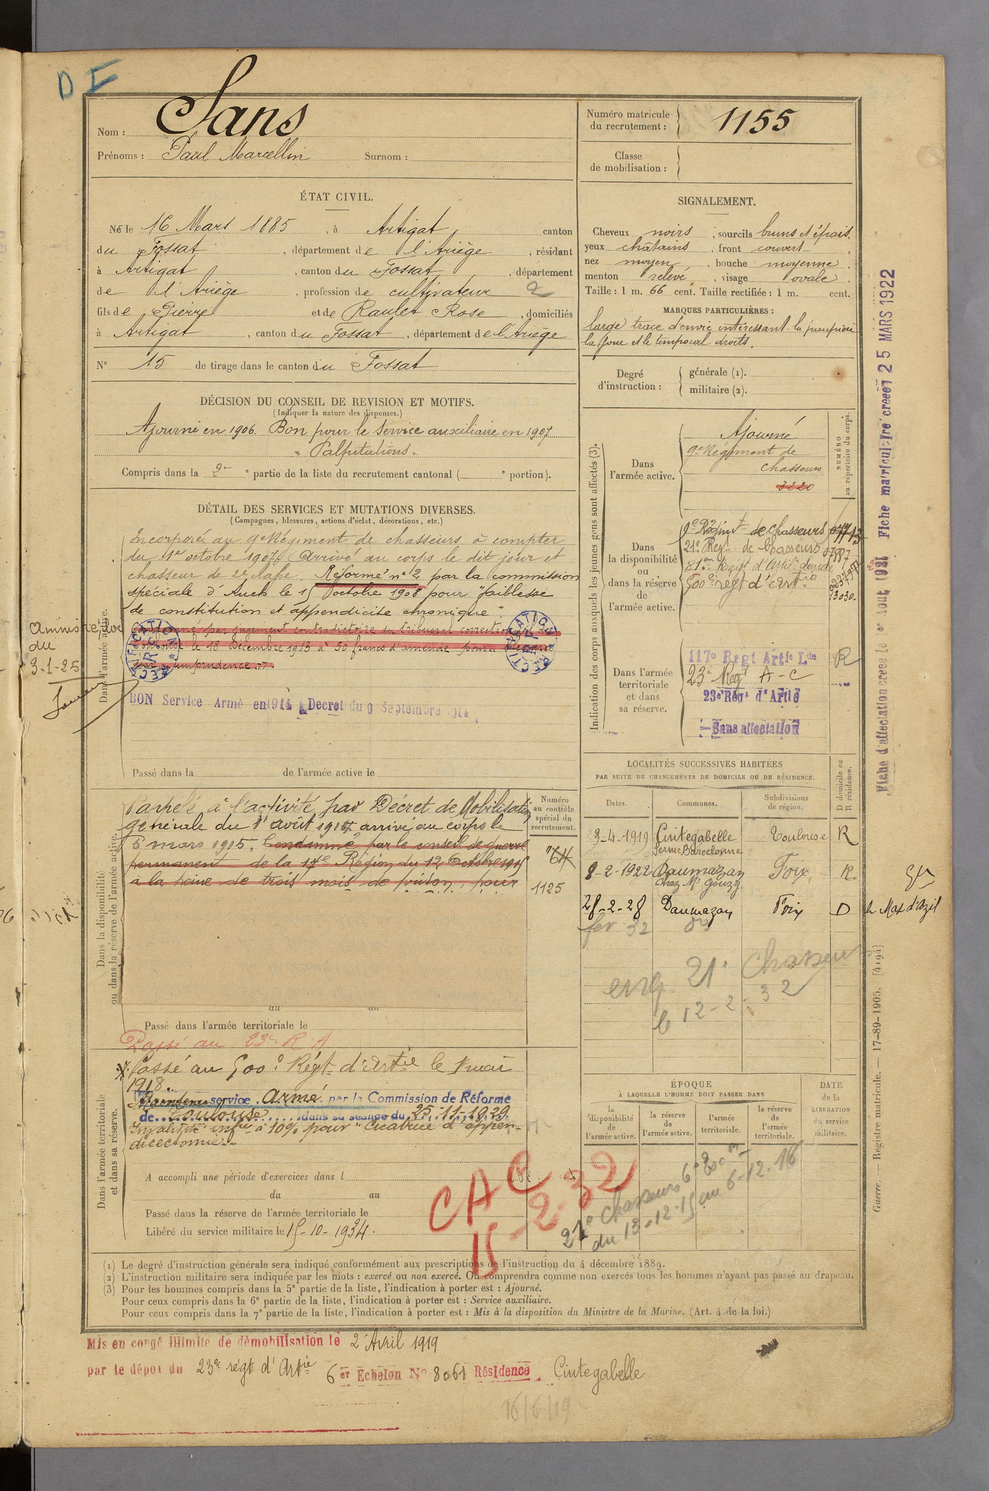 D I
Nom : Sans
Prénoms : Paul Marcellin Surnom :
Numéro matricule du recrutement : 1155
Classe de mobilisation :
ÉTAT CIVIL.
Né le 16 Mars 1885, à Artigat canton
du Fossat, département de l'Ariège, résidant
à Artigat, canton du Fossat, département
de l'Ariège, profession de cultivateur 2
fils de Pierre et de Raulet Rose, domiciliés
à Artigat, canton du Fossat, département de l'Ariège
N° 15 de tirage dans le canton du Fossat
SIGNALEMENT.
Cheveux noirs, sourcils bruns et épais
yeux châtains, front couvert
nez moyen, bouche moyenne
menton relevé, visage ovale
Taille : 1 m. 66 cent. Taille rectifiée : 1 m. cent.
MARQUES PARTICULIÈRES :
large trace d'envie intéressant la paupière
la joue et le temporal droits.
Degré d'instruction : générale (1).
militaire (2).
DÉCISION DU CONSEIL DE REVISION ET MOTIFS.
(Indiquer la nature des dispenses.)
Ajourné en 1906. Bon pour le Service auxiliaire en 1907
"Palpitations".
Compris dans la e partie de la liste du recrutement cantonal ( e portion).
DÉTAIL DES SERVICES ET MUTATIONS DIVERSES.
(Campagnes, blessures, actions d'éclat, décorations, etc.)
Incorporé au 9e Régiment de chasseurs à compter
du 1er octobre 1907. Arrivé au corps le dit jour et
chasseur de 2e classe. Réformé n° 2 par la commission
spéciale d'Auch le 15 octobre 1908 pour "faiblesse
de constitution et appendicite chronique"
par jugement contradictoire du tribunal correctionnel
le 18 Décembre 1913 à 50 francs d'amende pour
RECTIFICATION
RECTIFICATION
du
3-1-25
Dans l'armée active.
BON Service Armé en 1914 Décret du 9 Septembre 1914
Passé dans la de l'armée active le
Indication des corps auxquels les jeunes gens sont affectés (3).
NUMÉRO au répertoire du corps.
Dans l'armée active.
Ajourné
9e Régiment de
chasseurs
3220
Dans la disponibilité ou dans la réserve de l'armée active.
9e Régimt de chasseurs
21e Régt de Chasseurs
500e régt d'artie
Dans l'armée territoriale et dans sa réserve.
117e Régt Artie Lde R
23e Régt A-C
23e Régt d'Artie
Sans affectation
Fiche d'affectation créée le 1er Aout 1921 Fiche matriculaire créée 25 MARS 1922
Dans la disponibilité ou dans la réserve de l'armée active.
Rappelé à l'activité par Décret de Mobilisation
générale du 1er août 1914, arrivé au corps le
6 mars 1915. Condamné par le conseil de guerre
permanent de la 17e Région du 12 Octobre 1915
à la peine de trois mois de prison, pour
Numéro au contrôle spécial du recrutement.
1125
Passé dans l'armée territoriale le
Passé au 23e R A
LOCALITÉS SUCCESSIVES HABITÉES
PAR SUITE DE CHANGEMENTS DE DOMICILE OU DE RÉSIDENCE.
Dates. Communes. Subdivisions de région. D domicile ou R résidence.
2-4-1919 Cintegabelle Toulouse R
8-2-1922 Daumazan Foix R
chez Mr Gouzy
28-2-28 Daumazan Foix D le Mas d'Azil
fev 32
21e Chasseurs
le 12-2-32
Dans l'armée territoriale et dans sa réserve.
Passé au 500e Régt d'Artie le 1er mai
1918.
Maintenu service Armé par la Commission de Réforme
de Toulouse dans sa séance du 25-11-1929
Invalidité infre à 10% pour "Cicatrice d'appen-
dicectomie".
A accompli une période d'exercices dans l
du au
Passé dans la réserve de l'armée territoriale le
Libéré du service militaire le 15-10-1934.
CAC
15-2-32
ÉPOQUE
À LAQUELLE L'HOMME DOIT PASSER DANS
la disponibilité de l'armée active.
la réserve de l'armée active.
l'armée territoriale.
la réserve de l'armée territoriale.
DATE de la LIBÉRATION du service militaire.
21e chasseurs
du 13-12-15 au 6-12-16
Guerre. — Registre matricule. — 17-89-1905. [4194]
(1) Le degré d'instruction générale sera indiqué conformément aux prescriptions de l'instruction du 4 décembre 1889.
(2) L'instruction militaire sera indiquée par les mots : exercé ou non exercé. On comprendra comme non exercés tous les hommes n'ayant pas passé au drapeau.
(3) Pour les hommes compris dans la 5e partie de la liste, l'indication à porter est : Ajourné.
Pour ceux compris dans la 6e partie de la liste, l'indication à porter est : Service auxiliaire.
Pour ceux compris dans la 7e partie de la liste, l'indication à porter est : Mis à la disposition du Ministre de la Marine. (Art. 4 de la loi.)
Mis en congé illimité de démobilisation le 2 Avril 1919
par le dépot du 23e régt d'Artie 6er Echelon N° 8061 Résidence Cintegabelle
16/6/19